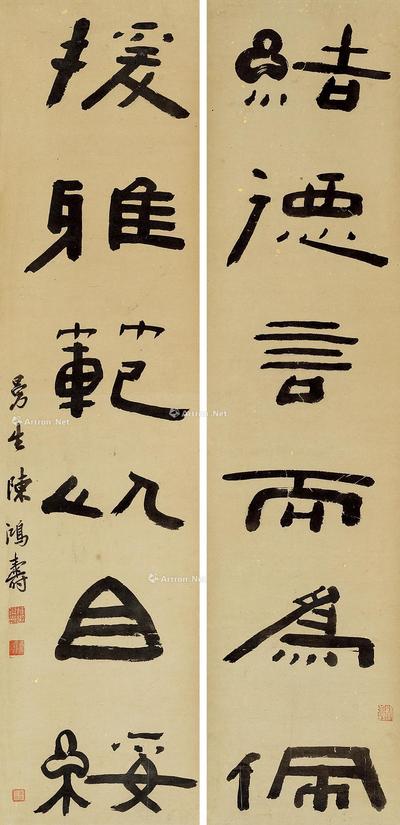 結德言而爲佩
援雅範以自綏
曼生陳鴻壽
Artron.Net
Artron.Net
Artron.Net
Artron.Net